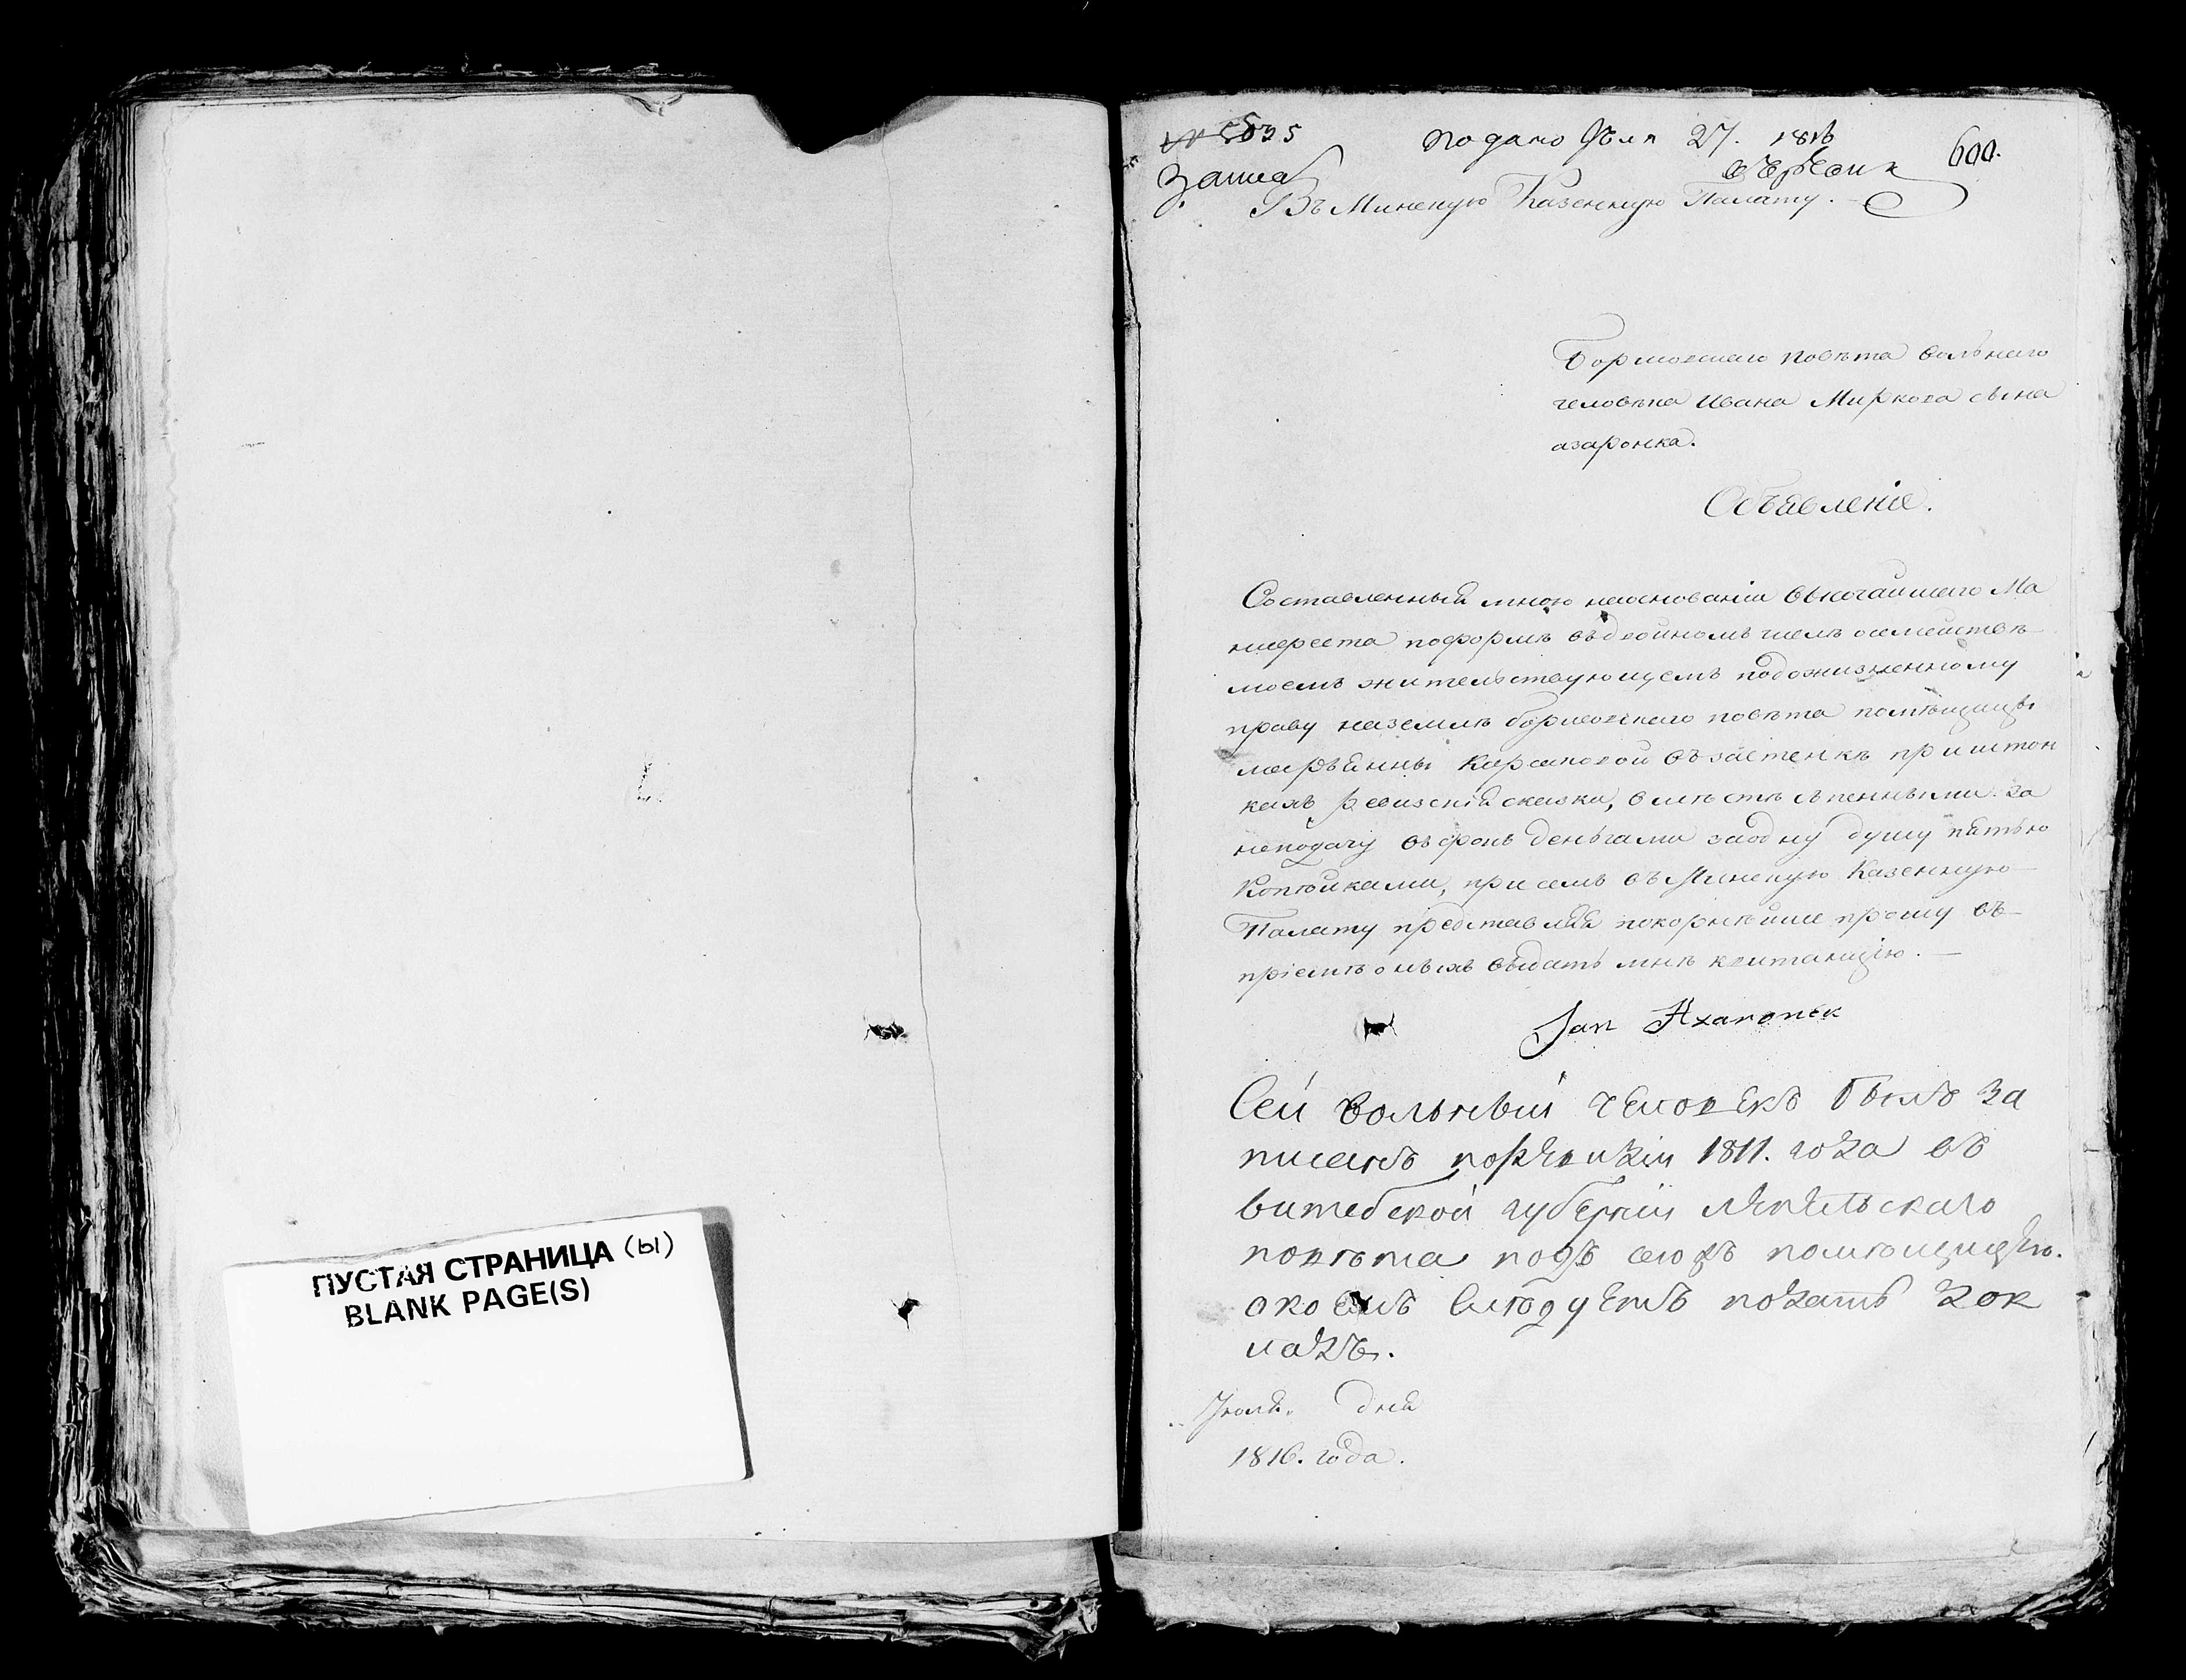 ПУСТАЯ СТРАНИЦА (Ы)
BLANK PAGE(S)
№ 5035
подано Іюля 27. 1816
600.
Въ Минскую Казенную Палату.
Борисовскаго повѣта вольнаго
человѣка Ивана Миркова сына
азаронка.
Объявленіе.
Составленный мною наоснованіи высочайшаго Ма
нифеста поформѣ въдвойномъ числѣ осемействѣ
моемъ жительствующемъ подожизненному
праву наземлѣ борисовскаго повѣта помѣщицы
марьянны въ застенкѣ приитон
кахъ ревизскія сказки, вмѣстѣ съ пенными за
неподачу въсрокъ деньгами заодну душу пятью
Копѣйками, присемъ въ Минскую Казенную
Палату представляя покорнѣйше прошу въ
пріемѣ оныхъ выдать мнѣ квитанцію.
Jan Azaronek
Сей вольный человекъ былъ за
писанъ поревизіи 1811. года въ
витебской губерніи лепельскаго
повѣта подъ сеюжъ помѣщицею.
окоемъ следуетъ подать Док
ладъ.
Іюля. дня
1816. года.